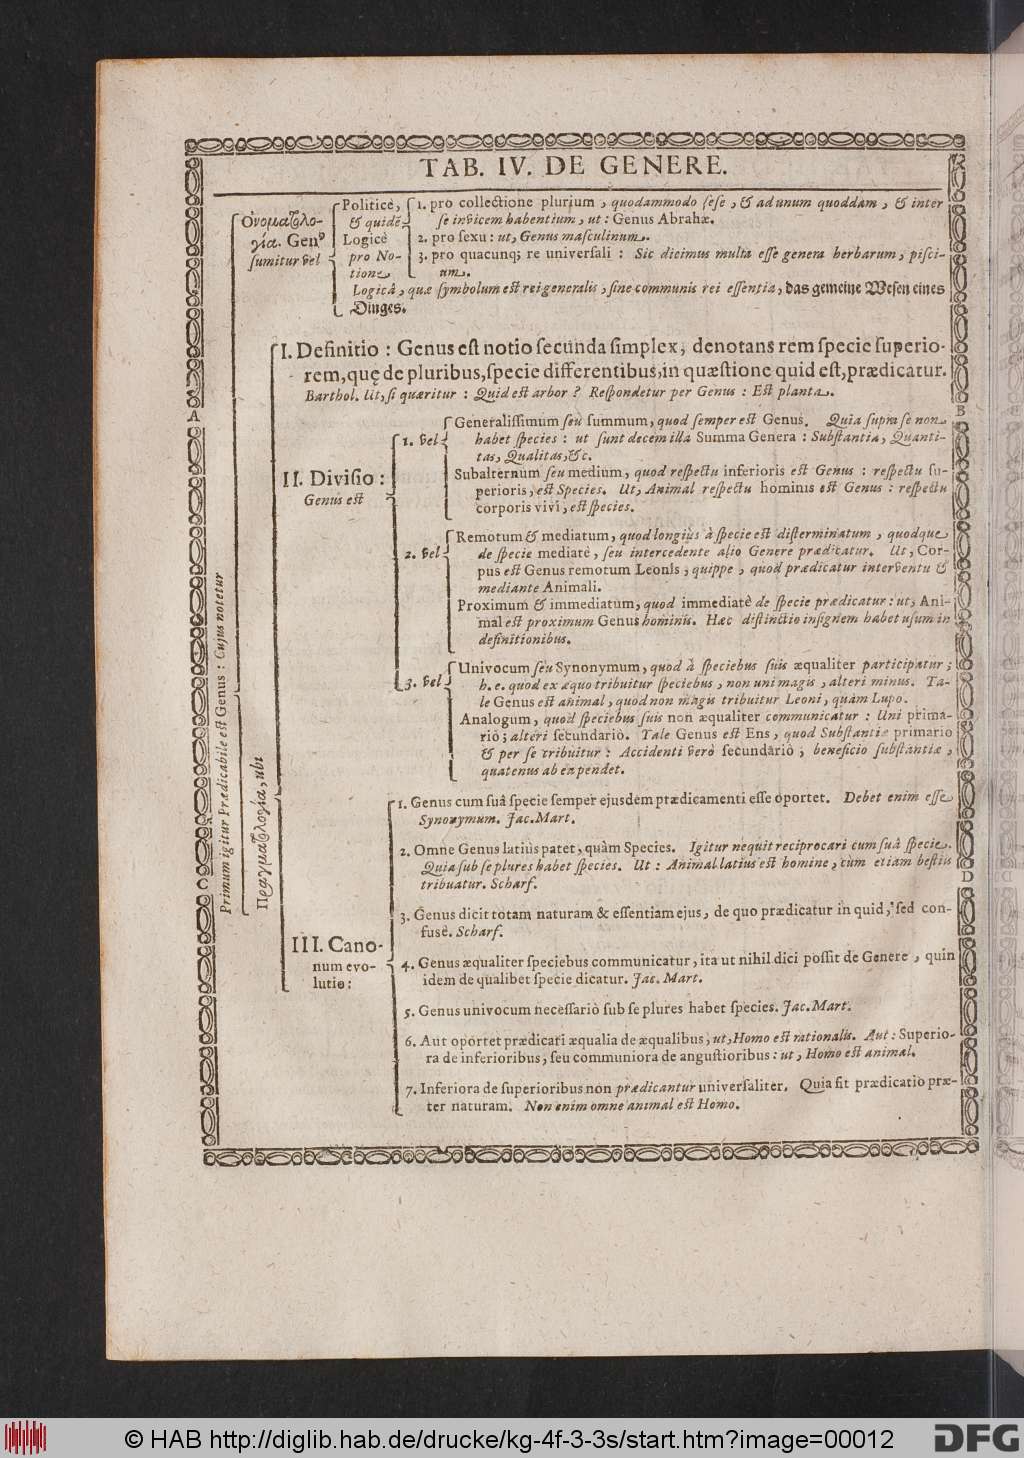 TAB. IV. DE GENERE.
Primum igitur Prædicabile est Genus : Cujus notetur
Ὀνοματολο-
γία. Genꝰ
ſumitur vel
Politicè,
& quidẽ
Logicè
pro No-
tione
1. pro collectione plurium, quodammodo ſeſe, & ad unum quoddam, & inter
ſe invicem habentium, ut: Genus Abrahæ.
2. pro ſexu: ut, Genus maſculinum.
3. pro quacunq; re univerſali : Sic dicimus multa eſſe genera herbarum, piſci-
um.
Logicâ, quæ ſymbolum est rei generalis, ſine communis rei eſſentia, das gemeine Weſen eines
Dinges.
Πραγματολογία, ubi
I. Definitio : Genus eſt notio ſecunda ſimplex, denotans rem ſpecie ſuperio-
rem, quę de pluribus, ſpecie differentibus, in quæſtione quid eſt, prædicatur.
Barthol. Ut, ſi quæritur : Quid est arbor ? Reſpondetur per Genus : Eſt planta.
II. Diviſio :
Genus est
1. vel
Generaliſſimum ſeu ſummum, quod ſemper est Genus. Quia ſupra ſe non
habet ſpecies : ut ſunt decem illa Summa Genera : Subſtantia, Quanti-
tas, Qualitas, &c.
Subalternum ſeu medium, quod reſpectu inferioris est Genus : reſpectu ſu-
perioris, est Species. Ut, Animal reſpectu hominis est Genus : reſpectu
corporis vivi, est ſpecies.
2. vel
Remotum & mediatum, quod longiùs à ſpecie est diſterminatum, quodque
de ſpecie mediatè, ſeu intercedente alio Genere prædicatur. Ut, Cor-
pus est Genus remotum Leonis; quippe, quod prædicatur interventu &
mediante Animali.
Proximum & immediatum, quod immediatè de ſpecie prædicatur : ut, Ani-
mal est proximum Genus hominis. Hæc diſtinctio inſignem habet uſum in
definitionibus.
3. vel
Univocum ſeu Synonymum, quod à ſpeciebus ſuis æqualiter participatur ;
h. e. quod ex æquo tribuitur ſpeciebus, non uni magis, alteri minus. Ta-
le Genus est animal, quod non magis tribuitur Leoni, quàm Lupo.
Analogum, quod ſpeciebus ſuis non æqualiter communicatur : Uni prima-
riò; alteri ſecundariò. Tale Genus est Ens, quod Subſtantiæ primario
& per ſe tribuitur : Accidenti verò ſecundariò ; beneficio ſubſtantiæ,
quatenus ab ea pendet.
III. Cano-
num evo-
lutio :
1. Genus cum ſuâ ſpecie ſemper ejusdem prædicamenti eſſe oportet. Debet enim eſſe
Synonymum. Jac. Mart.
2. Omne Genus latiùs patet, quàm Species. Igitur nequit reciprocari cum ſuâ ſpecie.
Quia ſub ſe plures habet ſpecies. Ut : Animal latius est homine, cùm etiam beſtiis
tribuatur. Scharf.
3. Genus dicit totam naturam & eſſentiam ejus, de quo prædicatur in quid, ſed con-
fusè. Scharf.
4. Genus æqualiter ſpeciebus communicatur, ita ut nihil dici poſſit de Genere, quin
idem de qualibet ſpecie dicatur. Jac. Mart.
5. Genus univocum neceſſariò ſub ſe plures habet ſpecies. Jac. Mart.
6. Aut oportet prædicari æqualia de æqualibus, ut, Homo est rationalis. Aut : Superio-
ra de inferioribus, ſeu communiora de anguſtioribus : ut, Homo est animal.
7. Inferiora de ſuperioribus non prædicantur univerſaliter. Quia ſit prædicatio præ-
ter naturam. Non enim omne animal est Homo.
A
B
C
D
© HAB http://diglib.hab.de/drucke/kg-4f-3-3s/start.htm?image=00012
DFG